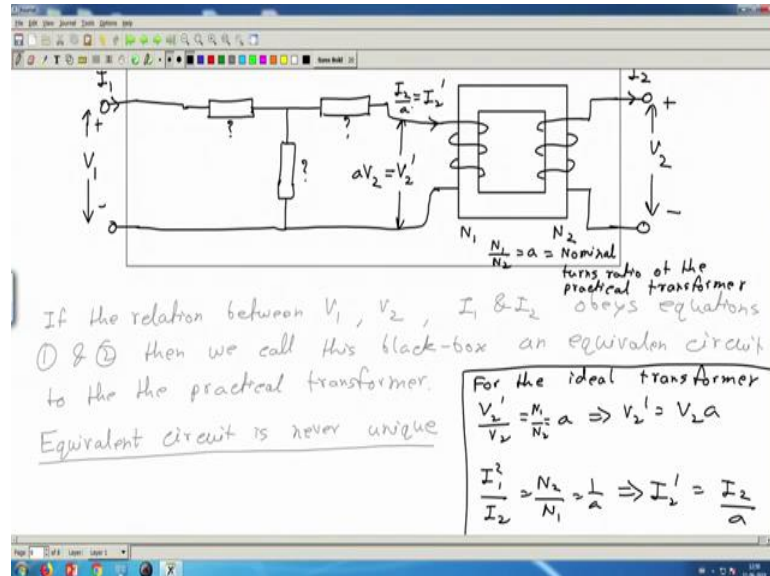 File Edit View Journal Tools Options Help
I₁
I₂/a = I₂'
I₂
+
?
?
+
V₁
?
aV₂ = V₂'
V₂
-
-
N₁
N₂
N₁/N₂ = a = Nominal
turns ratio of the
practical transformer
If the relation between V₁, V₂, I₁ & I₂ obeys equations
① & ② then we call this black-box an equivalen circuit
to the the practical transformer.
Equivalent circuit is never unique
For the ideal transformer
V₂'/V₂ = N₁/N₂ = a ⇒ V₂' = V₂a
I₁²/I₂ = N₂/N₁ = 1/a ⇒ I₂' = I₂/a
Layer: Layer 1